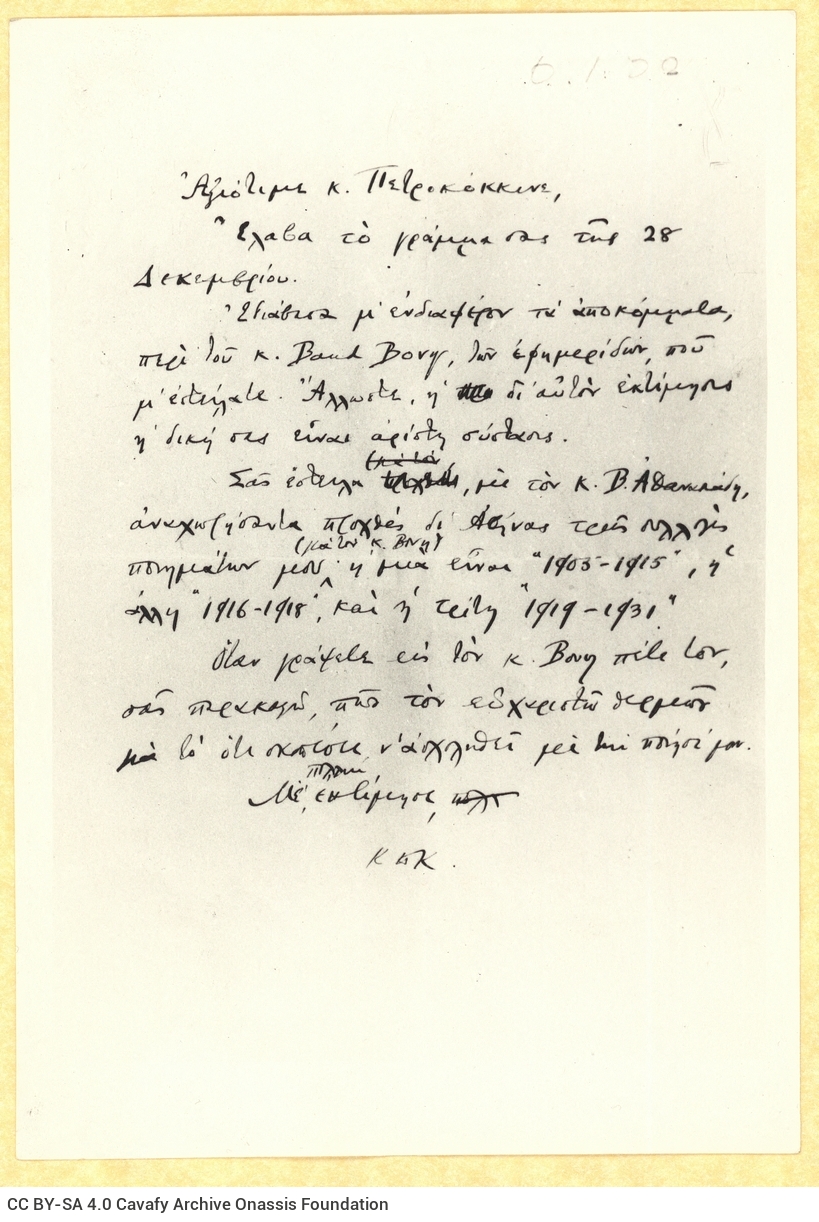 6.1.32
Ἀξιότιμε κ. Πετροκόκκινε,
Ἔλαβα τὸ γράμμα σας τῆς 28
Δεκεμβρίου.
Ἐδιάβασα μ' ἐνδιαφέρον τὰ ἀποκόμματα,
περὶ τοῦ κ. Baud Bovy, τῶν ἐφημερίδων, ποὺ
μ' ἐστείλατε. Ἄλλωστε, ἡ δι' αὐτὸν ἐκτίμησις
ἡ δική σας εἶναι ἀρίστη σύστασις.
(γιὰ τὸν
Σᾶς ἔστειλα, μὲ τὸν κ. Β. Ἀθανασιάδη,
ἀναχωρήσαντα προχθὲς δι' Ἀθήνας τρεῖς συλλογὲς
(γιὰ τὸν κ. Bovy)
ποιημάτων μου· ἡ μιὰ εἶναι "1905-1915", ἡ
ἄλλη "1916-1918", καὶ ἡ τρίτη "1919-1931"
Ὅταν γράψετε εἰς τὸν κ. Bovy πέτε τον,
σᾶς παρακαλῶ, πῶς τὸν εὐχαριστῶ θερμῶς
γιὰ τὸ ὅτι σκοπεύει ν' ἀσχοληθεῖ μὲ τὴν ποίησί μου.
πολλὴν
Μὲ ἐκτίμησιν, πολλ
Κ Π Κ.
CC BY-SA 4.0 Cavafy Archive Onassis Foundation